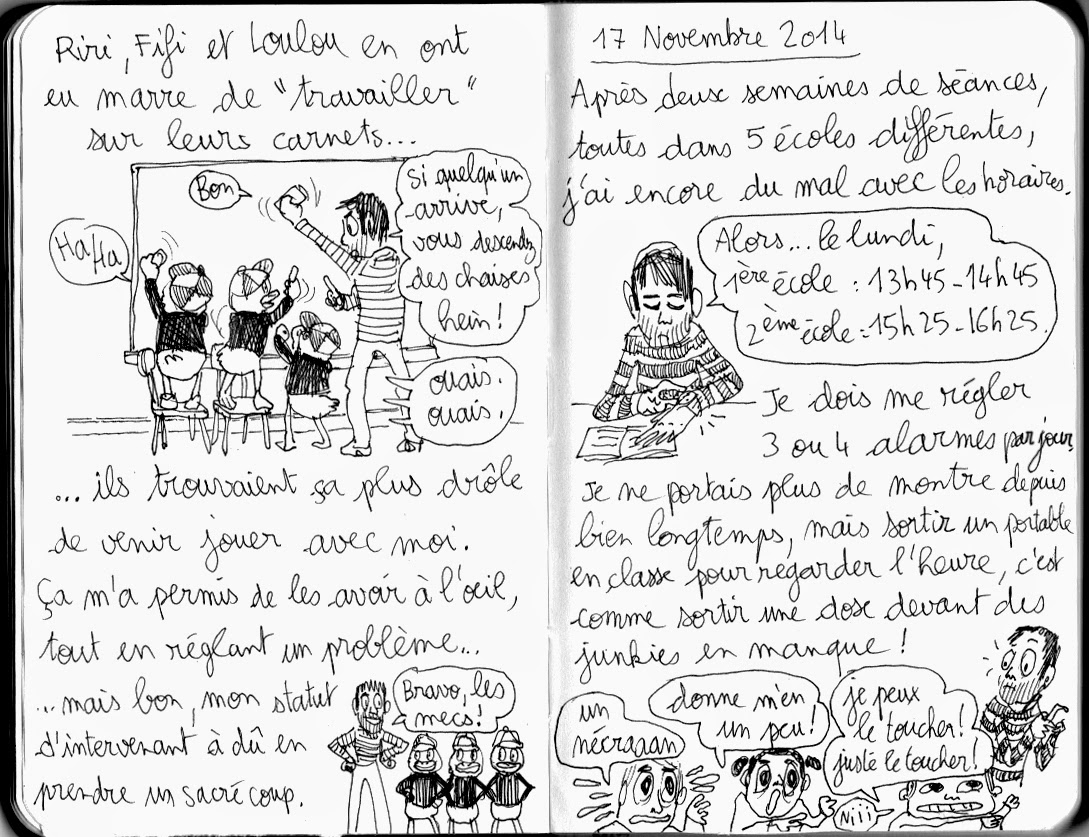 Riri, Fifi et Loulou en ont
eu marre de "travailler"
sur leurs carnets...
Bon
Ha Ha
Si quelqu'un
arrive,
vous descendez
des chaises
hein!
ouais.
ouais.
... ils trouvaient ça plus drôle
de venir jouer avec moi.
Ça m'a permis de les avoir à l'œil,
tout en réglant un problème...
...mais bon, mon statut
d'intervenant à dû en
prendre un sacré coup.
Bravo, les
mecs!
17 Novembre 2014
Après deux semaines de séances,
toutes dans 5 écoles différentes,
j'ai encore du mal avec les horaires.
Alors... le lundi,
1ère école : 13h45-14h45
2ème école : 15h25-16h25.
Je dois me régler
3 ou 4 alarmes par jour.
Je ne portais plus de montre depuis
bien longtemps, mais sortir un portable
en classe pour regarder l'heure, c'est
comme sortir une dose devant des
junkies en manque!
un
nécraaan
donne m'en
un peu!
je peux
le toucher!
juste le toucher!
Niii